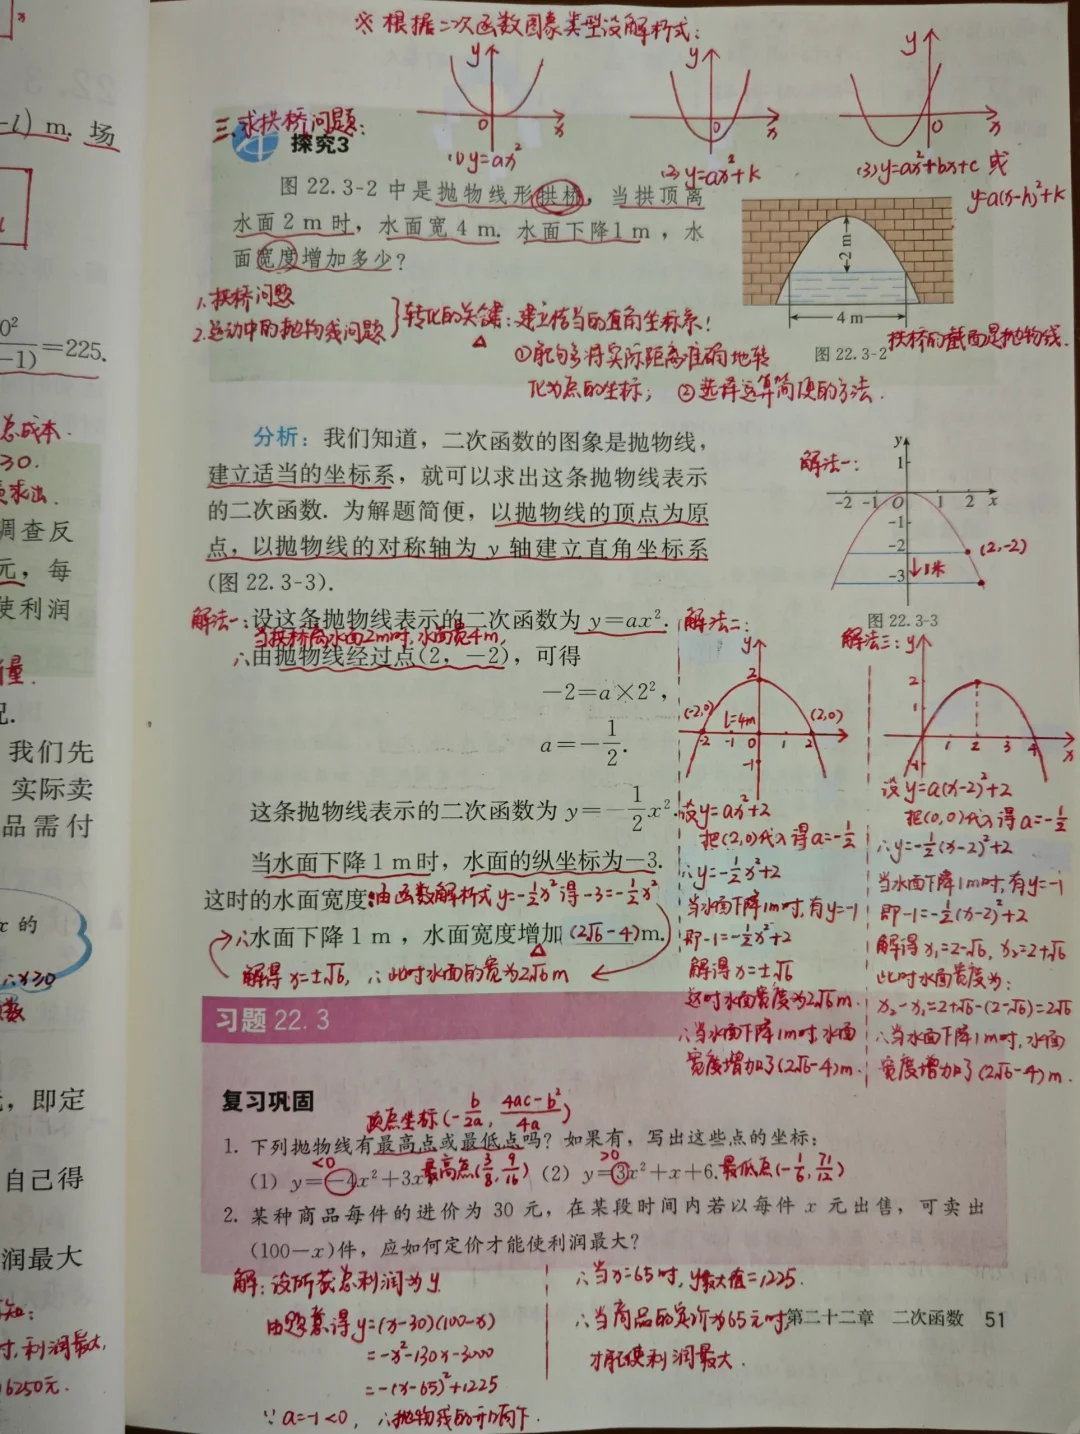 ※根据二次函数图象类型设解析式：
y
x
0
(1) y=ax²
y
x
0
(2) y=ax²+k
y
x
0
(3) y=ax²+bx+c 或
y=a(x-h)²+k
三、求拱桥问题：
探究3
图 22.3-2 中是抛物线形拱桥，当拱顶离
水面 2 m 时，水面宽 4 m. 水面下降 1 m，水
面宽度增加多少？
2 m
4 m
图 22.3-2
拱桥的截面是抛物线.
1. 拱桥问题
2. 运动中的抛物线问题
转化的关键：建立恰当的直角坐标系！
①能够将实际距离准确地转
化为点的坐标；②选择运算简便的方法.
分析：我们知道，二次函数的图象是抛物线，
建立适当的坐标系，就可以求出这条抛物线表示
的二次函数. 为解题简便，以抛物线的顶点为原
点，以抛物线的对称轴为 y 轴建立直角坐标系
(图 22.3-3).
解法一：
y
1
-2 -1 O 1 2 x
-1
-2
(2,-2)
↓1米
-3
图 22.3-3
解法一：设这条抛物线表示的二次函数为 y=ax².
当拱桥离水面2m时，水面宽4m，
∴由抛物线经过点(2，-2)，可得
-2=a×2²，
a=-1/2.
这条抛物线表示的二次函数为 y=-1/2x².
当水面下降 1 m时，水面的纵坐标为-3.
这时的水面宽度：由函数解析式 y=-1/2x²得 -3=-1/2x²
∴水面下降 1 m，水面宽度增加(2√6-4)m.
解得 x=±√6，∴此时水面的宽为2√6 m
解法二：
y
2
(-2,0) l=4m (2,0)
-2 -1 0 1 2
-1
设y=ax²+2
把(2,0)代入得a=-1/2
∴y=-1/2x²+2
当水面下降1m时，有y=-1
即-1=-1/2x²+2
解得 x=±√6
这时水面宽度为2√6 m.
∴当水面下降1m时，水面
宽度增加了(2√6-4)m.
解法三：
y
2
1
1 2 3 4 x
-1
设 y=a(x-2)²+2
把(0,0)代入得a=-1/2
∴y=-1/2(x-2)²+2
当水面下降1m时，有y=-1
即-1=-1/2(x-2)²+2
解得 x₁=2-√6，x₂=2+√6
此时水面宽度为：
x₂-x₁=2+√6-(2-√6)=2√6
∴当水面下降1m时，水面
宽度增加了(2√6-4)m.
习题 22.3
复习巩固
顶点坐标(-b/2a, 4ac-b²/4a)
1. 下列抛物线有最高点或最低点吗？如果有，写出这些点的坐标：
<0
>0
(1) y=-4x²+3x 最高点(3/8, 9/16) (2) y=3x²+x+6. 最低点(-1/6, 71/12)
2. 某种商品每件的进价为 30 元，在某段时间内若以每件 x 元出售，可卖出
(100-x)件，应如何定价才能使利润最大？
解：设所获总利润为y.
由题意得 y=(x-30)(100-x)
=-x²-130x-3000
=-(x-65)²+1225
∵a=-1<0，∴抛物线的开口向下.
∴当x=65时，y最大值=1225.
∴当商品的定价为65元时，
才能使利润最大.
第二十二章 二次函数 51
-l) m. 场
-1)
=225.
总成本.
30.
调查反
元，每
使利润
我们先
实际卖
品需付
x 的
∴x≥30
，即定
自己得
润最大
时，利润最大，
6250元.